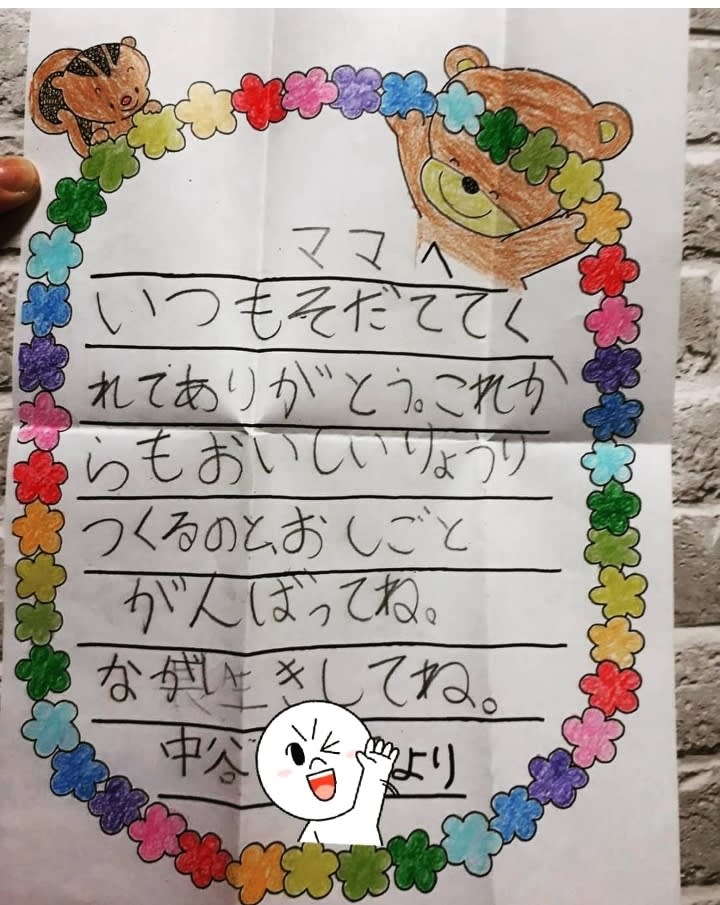 ママへ
いつもそだててく
れてありがとう。これか
らもおいしいりょうり
つくるのと、おしごと
がんばってね。
ながいきしてね。
中谷 より